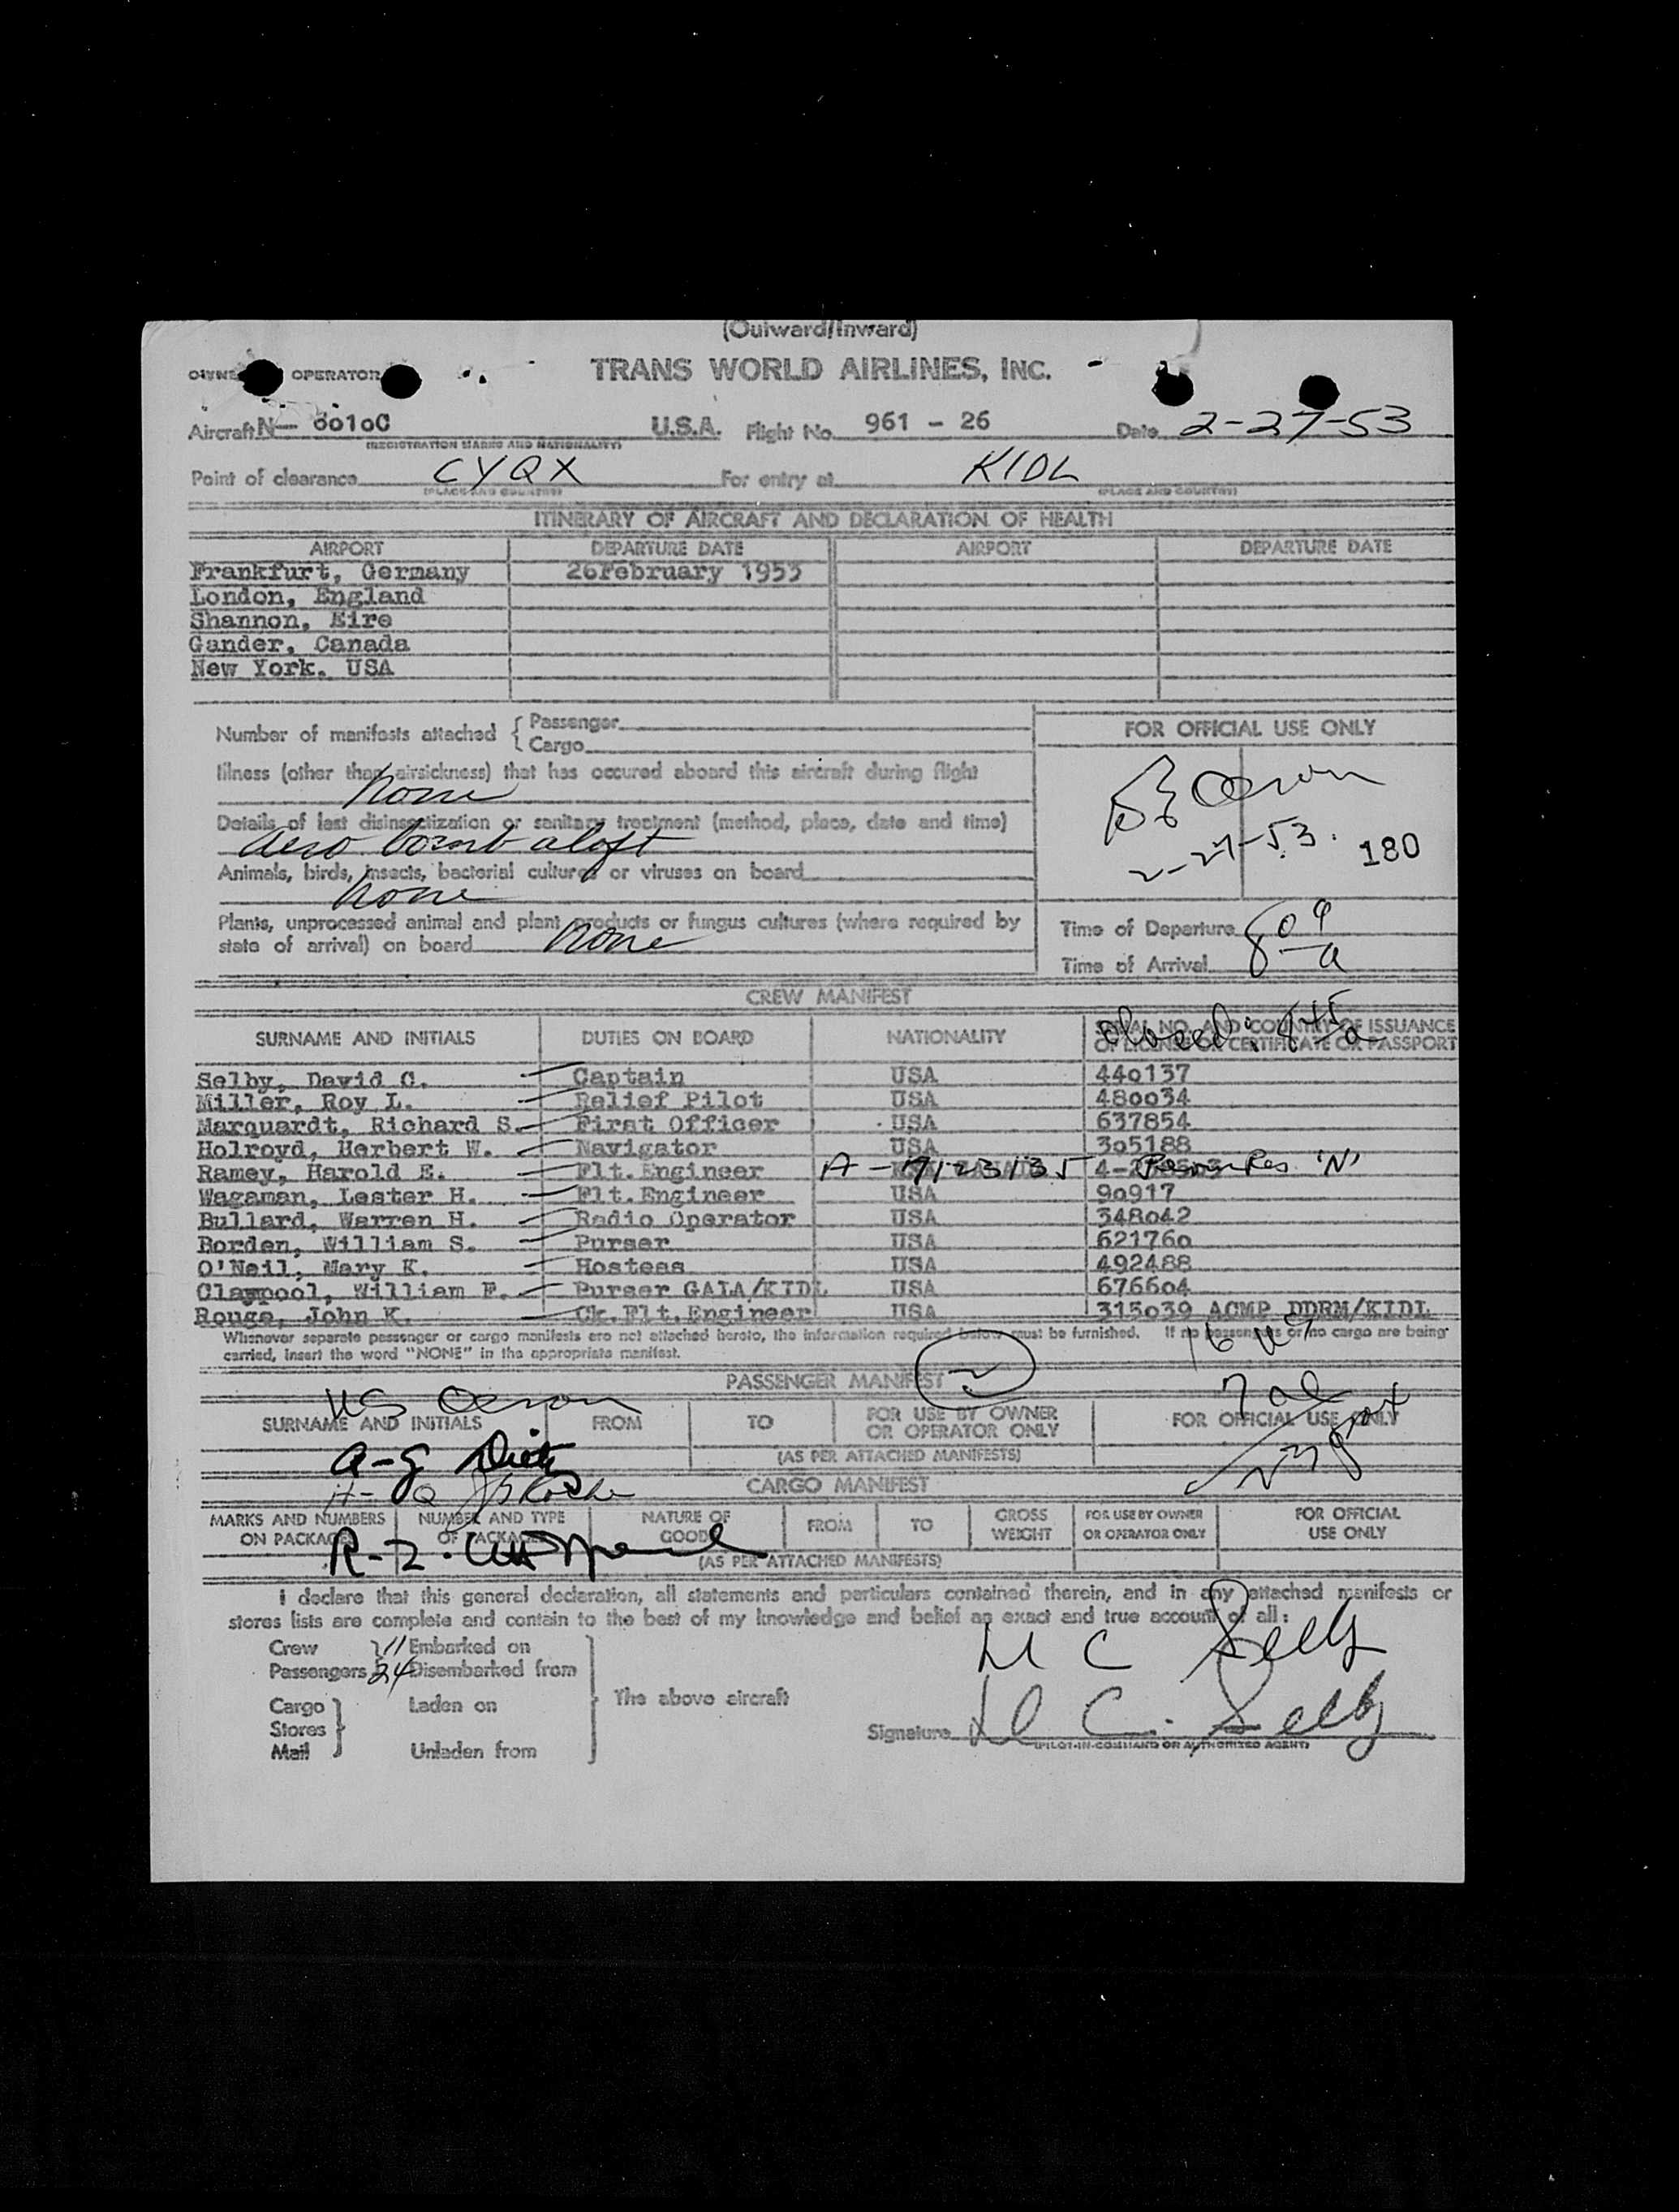 (Outward/Inward)
OPERATOR TRANS WORLD AIRLINES, INC.
Aircraft N— 6010C U.S.A. Flight No. 961 - 26 Date 2-27-53
(REGISTRATION MARKS AND NATIONALITY)
Point of clearance CYQX For entry at KIDL
(PLACE AND COUNTRY) (PLACE AND COUNTRY)
ITINERARY OF AIRCRAFT AND DECLARATION OF HEALTH
AIRPORT DEPARTURE DATE AIRPORT DEPARTURE DATE
Frankfurt, Germany 26February 1953
London, England
Shannon, Eire
Gander, Canada
New York. USA
Number of manifests attached { Passenger
Cargo
FOR OFFICIAL USE ONLY
Illness (other than airsickness) that has occured aboard this aircraft during flight
none
Details of last disinsectization or sanitary treatment (method, place, date and time)
Aero bomb aloft
2-27-53. 180
Animals, birds, insects, bacterial cultures or viruses on board
none
Plants, unprocessed animal and plant products or fungus cultures (where required by
state of arrival) on board none
Time of Departure
Time of Arrival
CREW MANIFEST
SURNAME AND INITIALS DUTIES ON BOARD NATIONALITY SERIAL NO. AND COUNTRY OF ISSUANCE
OF LICENSE OR CERTIFICATE OR PASSPORT
Selby, David C. Captain USA 440137
Miller, Roy L. Relief Pilot USA 480034
Marquardt, Richard S. First Officer USA 637854
Holroyd, Herbert W. Navigator USA 305188
Ramey, Harold E. Flt.Engineer 'N'
Wagaman, Lester H. Flt.Engineer USA 90917
Bullard, Warren H. Radio Operator USA 348042
Borden, William S. Purser USA 621760
O'Neil, Mary K. Hostess USA 492488
Claypool, William F. Purser GALA/KIDL USA 676604
Rouge, John K. Ck.Flt.Engineer USA 315039 ACMP DDRM/KIDL
Whenever separate passenger or cargo manifests are not attached hereto, the information required below must be furnished. If no passengers or no cargo are being
carried, insert the word "NONE" in the appropriate manifest.
PASSENGER MANIFEST
SURNAME AND INITIALS FROM TO FOR USE BY OWNER
OR OPERATOR ONLY FOR OFFICIAL USE ONLY
(AS PER ATTACHED MANIFESTS)
CARGO MANIFEST
MARKS AND NUMBERS
ON PACKAGES NUMBER AND TYPE
OF PACKAGES NATURE OF
GOODS FROM TO GROSS
WEIGHT FOR USE BY OWNER
OR OPERATOR ONLY FOR OFFICIAL
USE ONLY
(AS PER ATTACHED MANIFESTS)
I declare that this general declaration, all statements and particulars contained therein, and in any attached manifests or
stores lists are complete and contain to the best of my knowledge and belief an exact and true account of all:
Crew 11 Embarked on
Passengers 24 Disembarked from
Cargo Laden on The above aircraft
Stores
Mail Unladen from
D C Selby
Signature D C. Selby
(PILOT-IN-COMMAND OR AUTHORIZED AGENT)